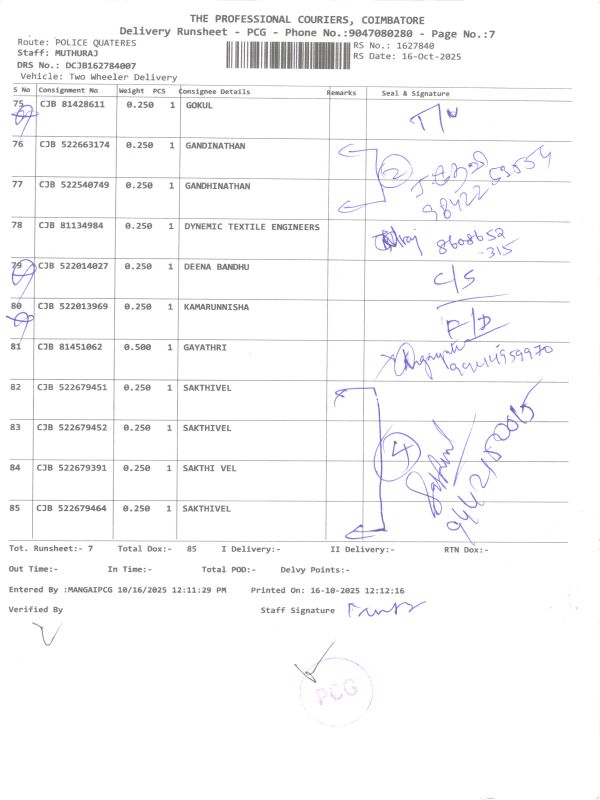 THE PROFESSIONAL COURIERS, COIMBATORE
Delivery Runsheet - PCG - Phone No.:9047080280 - Page No.:7
Route: POLICE QUATERES RS No.: 1627840
Staff: MUTHURAJ RS Date: 16-Oct-2025
DRS No.: DCJB162784007
Vehicle: Two Wheeler Delivery
S No Consignment No Weight PCS Consignee Details Remarks Seal & Signature
75 CJB 81428611 0.250 1 GOKUL
76 CJB 522663174 0.250 1 GANDINATHAN
2
77 CJB 522540749 0.250 1 GANDHINATHAN
78 CJB 81134984 0.250 1 DYNEMIC TEXTILE ENGINEERS
8608652
-315
79 CJB 522014027 0.250 1 DEENA BANDHU
C/S
80 CJB 522013969 0.250 1 KAMARUNNISHA
F/D
81 CJB 81451062 0.500 1 GAYATHRI
82 CJB 522679451 0.250 1 SAKTHIVEL
83 CJB 522679452 0.250 1 SAKTHIVEL
4
84 CJB 522679391 0.250 1 SAKTHI VEL
85 CJB 522679464 0.250 1 SAKTHIVEL
Tot. Runsheet:- 7 Total Dox:- 85 I Delivery:- II Delivery:- RTN Dox:-
Out Time:- In Time:- Total POD:- Delvy Points:-
Entered By :MANGAIPCG 10/16/2025 12:11:29 PM Printed On: 16-10-2025 12:12:16
Verified By Staff Signature
PCG